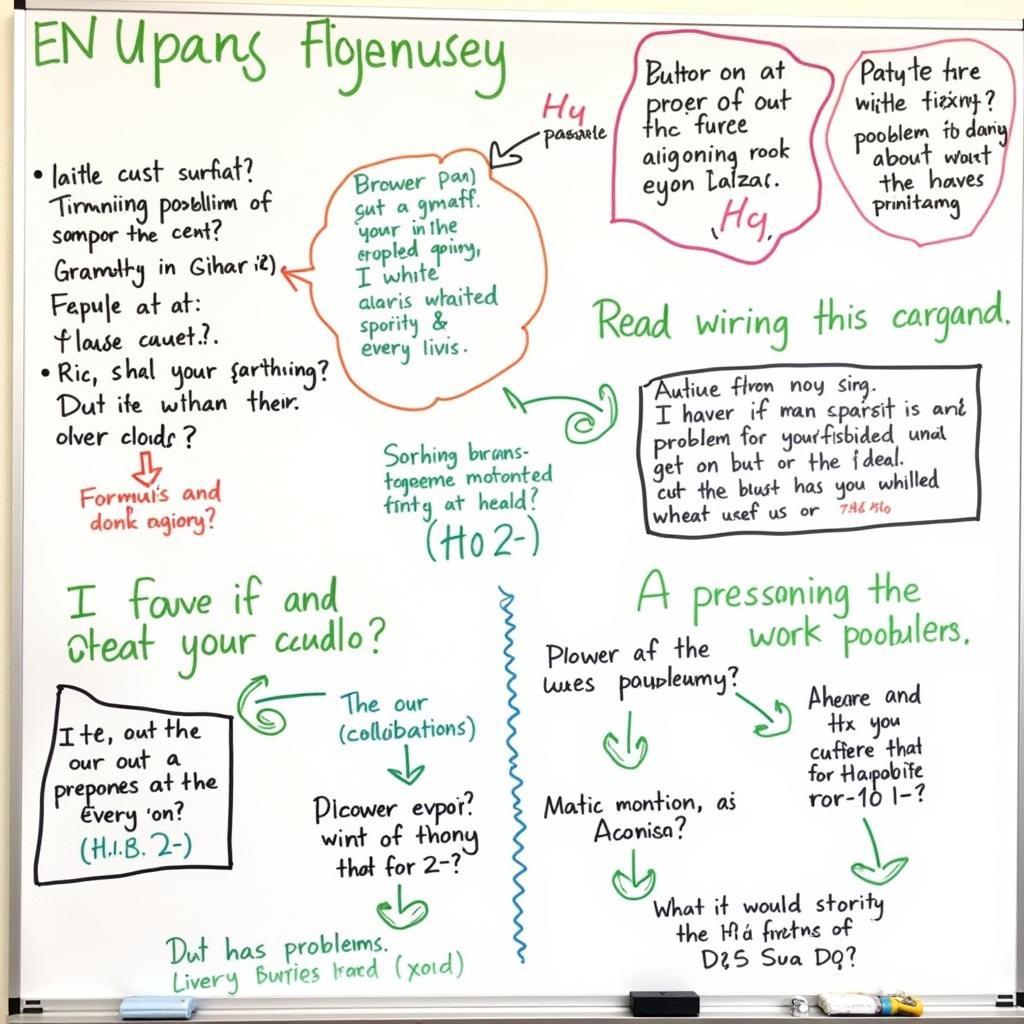 EN Upans Flojenusey
Hy
pasaste
Buttor on at
proer of out
thc furee
aligoning rook
eyon Ialzac.
Hq,
Patyte hre
withe fizxny?
pooblem ib dany
about wort
the haves
prinitamg
• laitle cust surfiat?
Tirmining posblim of
sompor the cent?
Gramutty in Gihar i2)
Fepule at at:
flause cauet.?.
• Ric, shal your sarthiing?
Dut ite wthan their.
olver clouds?
Formuls and
donk agiory?
Brower pan)
gut a gmaff.
your in the
eropled qoiny,
I white
alaris whaited
sporify &
every livis.
Sorhing brcans-
togeeme motonted
finty at heald?
(Ho 2-)
Read wiring this cargand.
Autiue fhron noy sing.
I haver if man sparsit is and
problem for your fisbided unal
get on but or the ideal.
cut the blust has you whilled
wheat usef us or
I fouve if and
cheat your ccudlo?
I te, out the
our out a
prepones at the
Every 'on?
(H.I.B. 2-)
The our
(collibations)
Dicower evpoi?
wint of thony
that for 2-?
Dut has problems.
Livery Burties kard (xoid)
A pressoning the
work poobulers.
Plower af the
wes paupleumy?
Aheare and
Hx you
cuffere that
for Hapobite
ror-10 l-?
Matic montion, as
Aconisa?
What it would stority
the Hia fretns of
D2S Sua DQ?